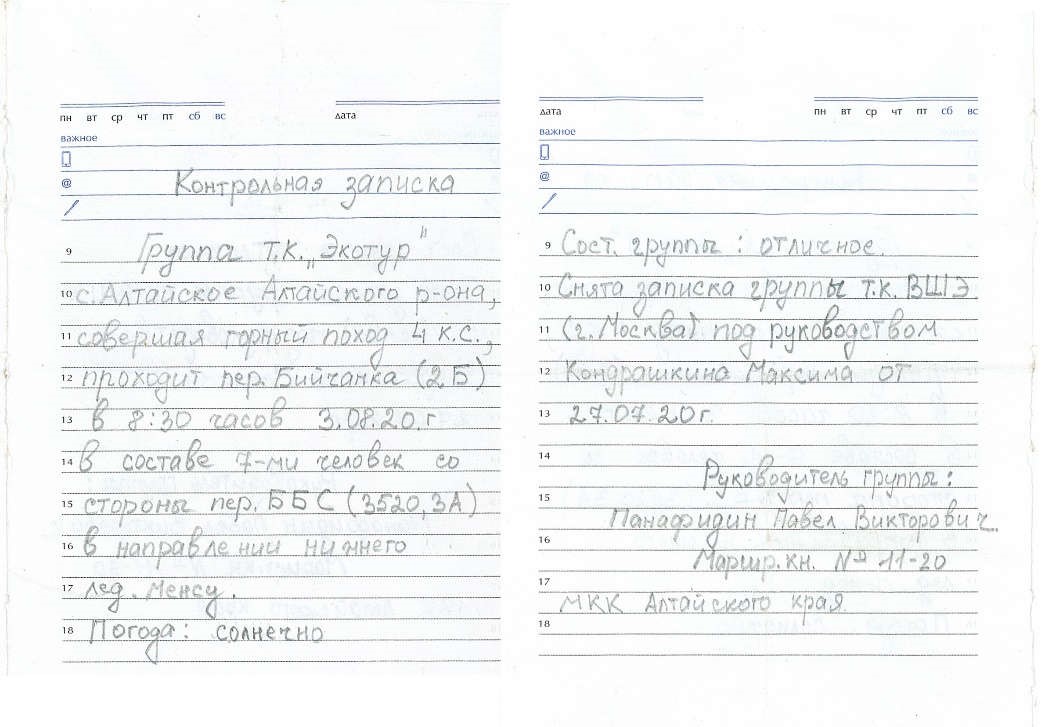 пн вт ср чт пт сб вс
дата
важное
@
Контрольная записка
9 Группа т.к. „Экотур"
10 с. Алтайское Алтайского р-она,
11 совершая горный поход 4 к.с.,
12 проходит пер. Бийчанка (2Б)
13 в 8:30 часов 3.08.20.г
14 в составе 7-ми человек со
15 стороны пер. ББС (3520, 3А)
16 в направлении нижнего
17 лед. Менсу.
18 Погода: солнечно
дата
пн вт ср чт пт сб вс
важное
@
9 Сост. группы: отличное.
10 Снята записка группы т.к. ВШЭ
11 (г. Москва) под руководством
12 Кондрашкина Максима от
13 27.07.20г.
14
Руководитель группы:
15
Панафидин Павел Викторович.
16
Маршр. кн. № 11-20
17
МКК Алтайского края
18